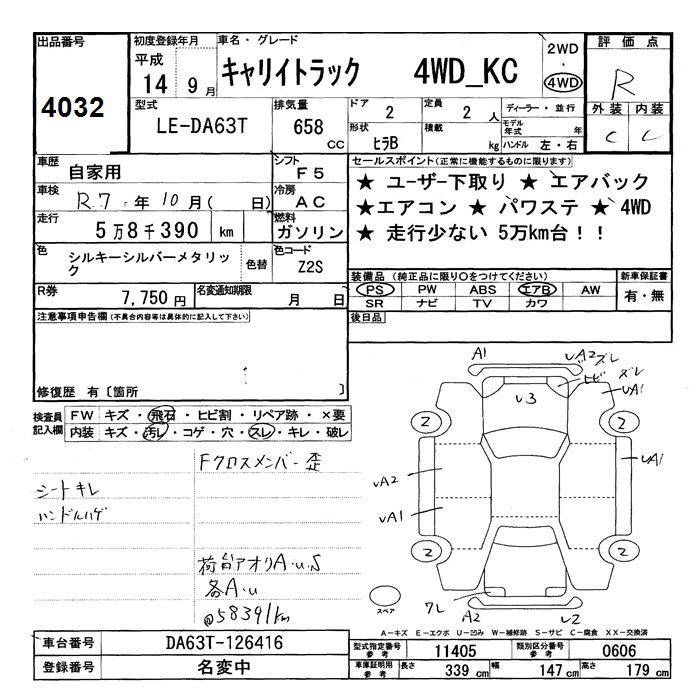 出品番号
4032
初度登録年月
平成
14 9 月
車名・グレード
キャリイトラック 4WD_KC
2WD
・
4WD
評価点
R
外装 内装
C C
型式
LE-DA63T
排気量
658
CC
ドア
2
定員
2 人
形状
ヒラB
積載
kg
ディーラー・並行
モデル年式 年
ハンドル 左・右
車歴
自家用
シフト
F5
車検
R.7 年 10 月 ( 日)
冷房
AC
走行
5万8千390 km
燃料
ガソリン
色
シルキーシルバーメタリック
色替
色コード
Z2S
R券
7,750 円
名変通知期限
月 日
セールスポイント(正常に機能するものに限ります)
★ ユーザー下取り ★ エアバック
★エアコン ★ パワステ ★ 4WD
★ 走行少ない 5万km台!!
装備品 (純正品に限り○をつけてください)
PS PW ABS エアB AW
SR ナビ TV カワ
新車保証書
有・無
後日品
注意事項申告欄(不具合内容等は具体的に記入して下さい)
修復歴 有〔箇所 〕
検査員記入欄
FW キズ・飛石・ヒビ割・リペア跡・×要
内装 キズ・汚レ・コゲ・穴・スレ・キレ・破レ
Fクロスメンバー歪
シートキレ
ハンドルハゲ
荷台アオリA・u・S
各A・u
@58391km
A1
uA2ズレ
ヒビ
ズレ
uA1
u3
2
2
uA2
uA1
uA1
2
2
ワレ
A2
u2
スペア
A-キズ E-エクボ U-凹み W-補修跡 S-サビ C-腐食 XX-交換済
車台番号
DA63T-126416
登録番号
名変中
型式指定番号
参考
11405
類別区分番号
参考
0606
車庫証明用
参考
長さ
339 cm
幅
147 cm
高さ
179 cm